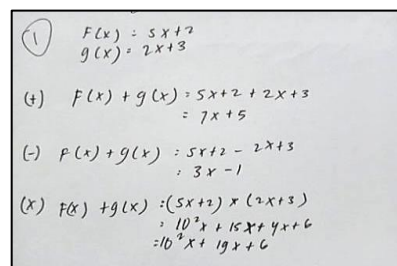 1 F(x) = 5x+2
g(x) = 2x+3
(+) F(x) + g(x) = 5x+2 + 2x+3
= 7x+5
(-) F(x) + g(x) = 5x+2 - 2x+3
: 3x-1
(x) F(x) + g(x) = (5x+2) x (2x+3)
= 10²x + 15x + 4x + 6
= 10²x + 19x + 6